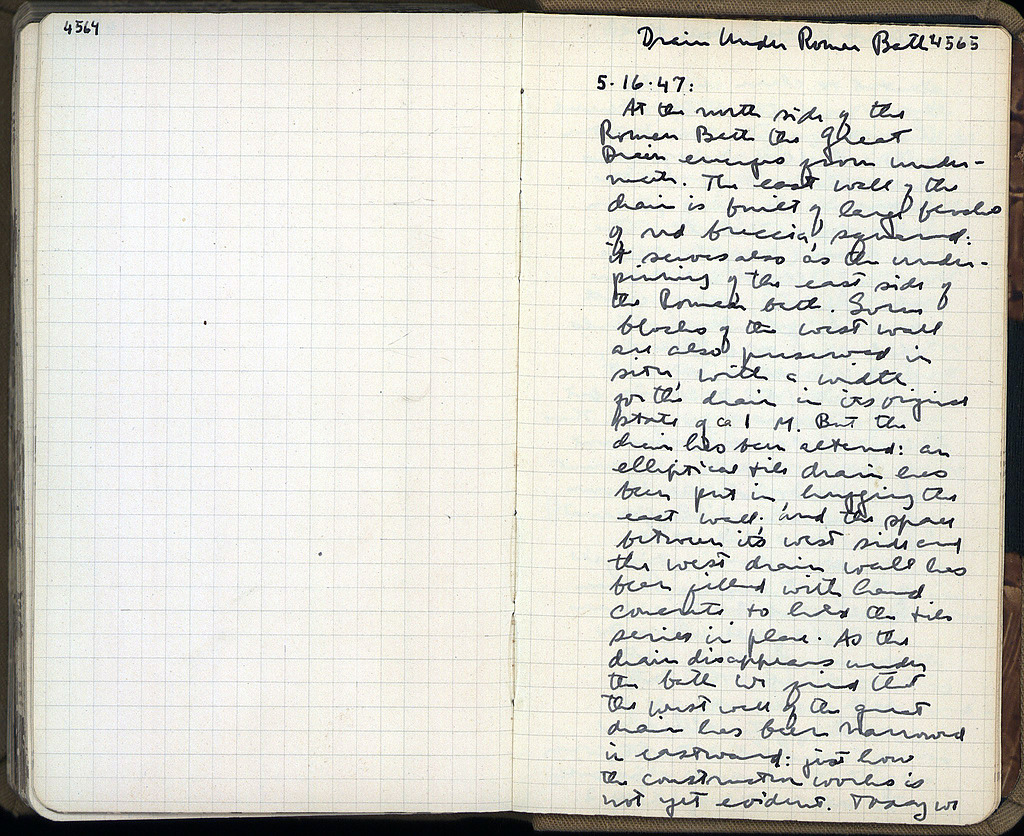 4564
Drain Under Roman Bath 4565
5·16·47:
At the north side of the
Roman Bath the great
Drain emerges from under-
neath. The east wall of the
drain is built of large blocks
of red breccia, squared:
it serves also as the under-
pinning of the east side of
the Roman bath. Some
blocks of the west wall
are also preserved in
situ, with a width
for the drain in its original
state of ca 1 M. But the
drain has been altered: an
elliptical tile drain has
been put in, hugging the
east wall; and the space
between its west side and
the west drain wall has
been filled with hard
concrete to hold the tile
series in place. As the
drain disappears under
the bath we find that
the west wall of the great
drain has been narrowed
in eastward: just how
the construction works is
not yet evident. Today we